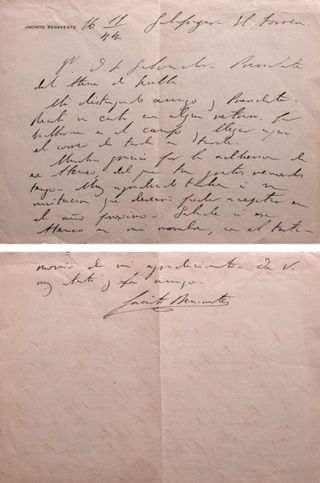 JACINTO BENAVENTE
16 11/44
Galapagar El torreon
Sr. D.
Presidente
del Ateneo de Sevilla
Mi distinguido amigo y Presidente:
Recibí su carta con algún retraso, por
hallarme en el campo y llegar aquí
el correo de tarde en tarde.
Muchas gracias por la adhesión de
ese Ateneo, del que tan gratos recuerdos
tengo. Muy agradecido también a su
invitación que desearía poder aceptar en
el año próximo. Salude a ese
Ateneo en mi nombre, con el testi-
monio de mi agradecimiento. De V.
muy atto. y amigo
Jacinto Benavente